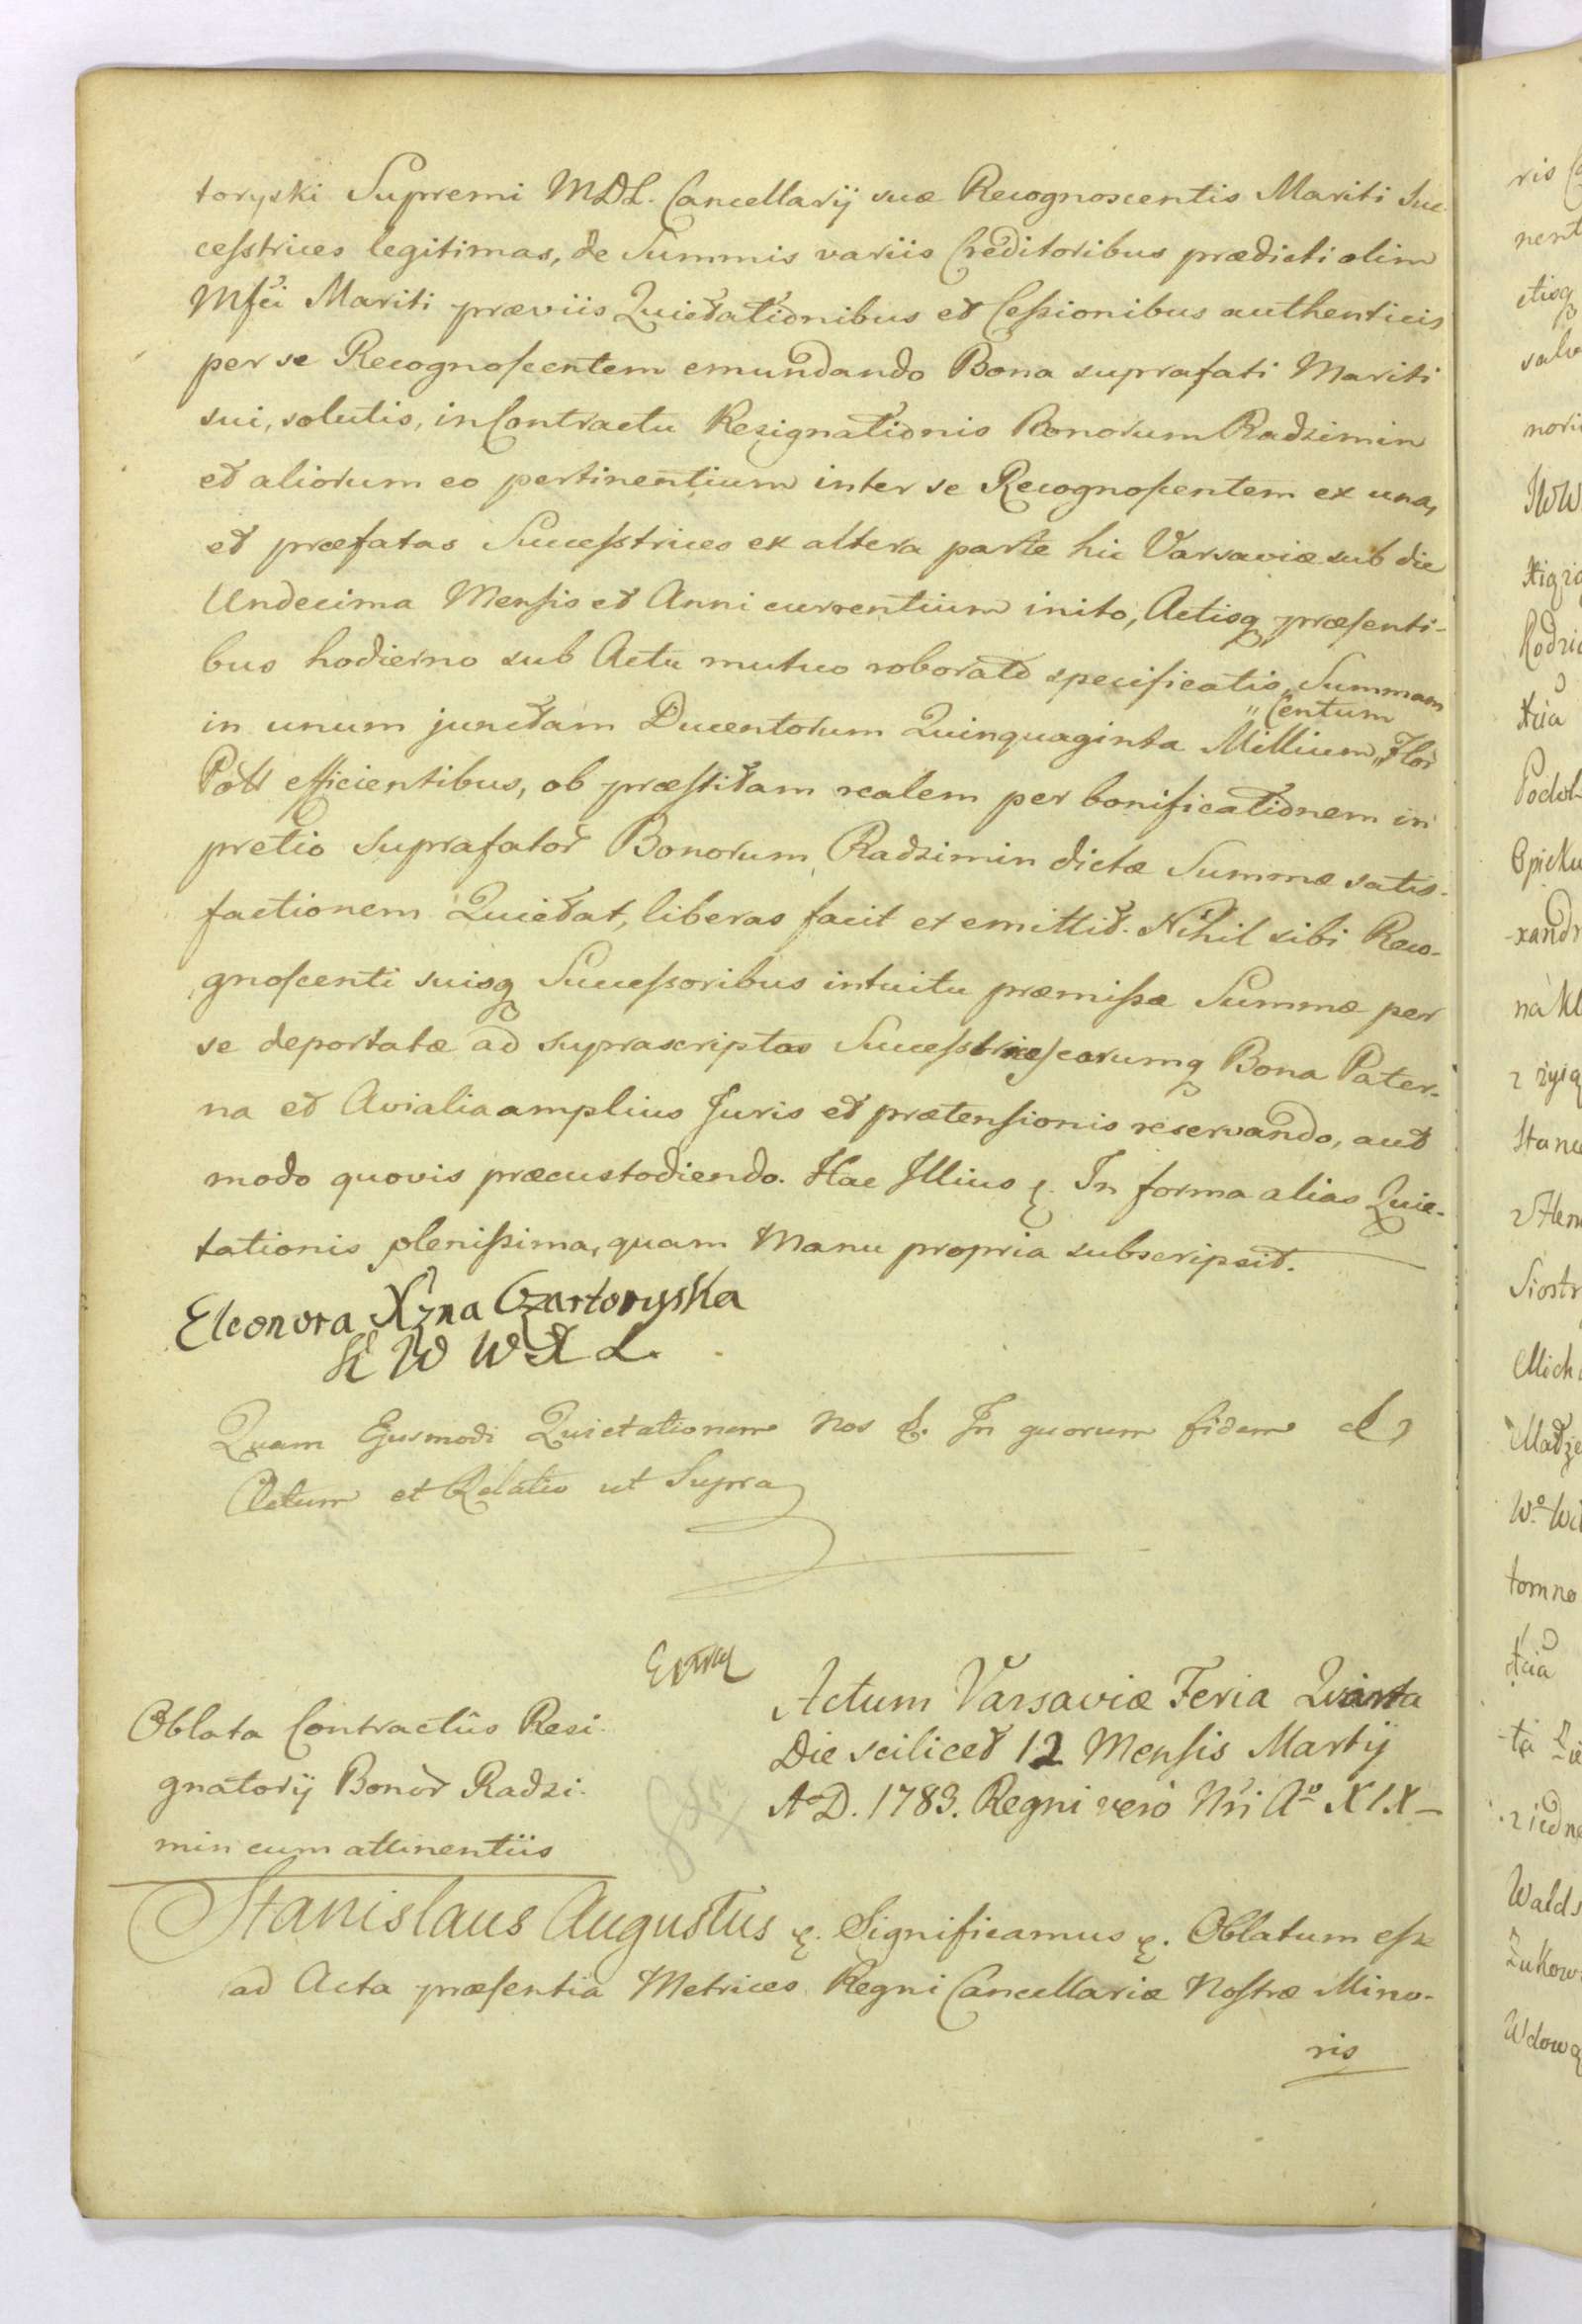 toryski Supremi MDL. Cancellarij suæ Recognoscentis Mariti Suc-
cesstrices legitimas, de Summis variis Creditoribus prædicti olim
Mfci Mariti præviis Quietationibus et Cessionibus authenticis
per se Recognoscentem emundando Bona suprafati Mariti
sui, solutis, in Contractu Resignationis Bonorum Radzimin
et aliorum eo pertinentium inter se Recognoscentem ex una,
et præfatas Successtrices ex altera parte hic Varsaviæ sub die
Undecima Mensis et Anni currentium inito, Actisq præsenti-
bus hodierno sub Actu mutuo roborato specificatis, Summam
in unum junctam Ducentorum Quinquaginta Millium „Centum„ Flor
Poll efficientibus, ob præstitam realem per bonificationem in
pretio suprafator Bonorum Radzimin dictæ Summæ satis-
factionem Quietat, liberas facit et emittit. Nihil sibi Reco-
gnoscenti suisq Successoribus intuitu præmissæ Summæ per
se deportatæ ad suprascriptas Successtrices earumq Bona Pater-
na et Avialia amplius Juris et prætensionis reservando, aut
modo quovis præcustodiendo. Hac Illius &. In forma alias Quie-
tationis plenissima, quam Manu propria subscripsit.
Eleonora Xżna Czartoryska
K W W X L.
Quam Ejusmodi Quietationem Nos &. In quorum fidem &
Actum et Relatio ut Supra
Oblata Contractûs Resi-
gnatorij Bonor Radzi-
min cum attinentiis
Actum Varsaviæ Feria Quarta
Die scilicet 12 Mensis Martij
A D. 1783. Regni vero Nri Ao XIX-
Stanislaus Augustus &. Significamus &. Oblatum esse
ad Acta præsentia Metrices Regni Cancellariæ Nostræ Mino-
ris
nori
Podol-
Opieku
-xandr
Siostr
tomne
Wdową